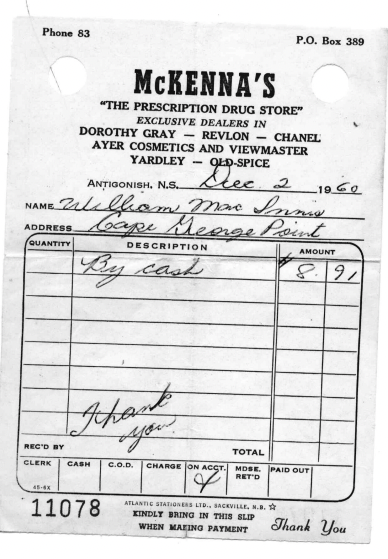 Phone 83
P.O. Box 389
McKENNA'S
"THE PRESCRIPTION DRUG STORE"
EXCLUSIVE DEALERS IN
DOROTHY GRAY — REVLON — CHANEL
AYER COSMETICS AND VIEWMASTER
YARDLEY — OLD-SPICE
ANTIGONISH, N.S. Dec. 2 1960
NAME William Mac Innis
ADDRESS Cape George Point
QUANTITY DESCRIPTION AMOUNT
By cash $8.91
Thank
you
REC'D BY TOTAL
CLERK CASH C.O.D. CHARGE ON ACCT. MDSE. RET'D PAID OUT
45-6X
11078
ATLANTIC STATIONERS LTD., SACKVILLE, N.B.
KINDLY BRING IN THIS SLIP
WHEN MAKING PAYMENT
Thank You